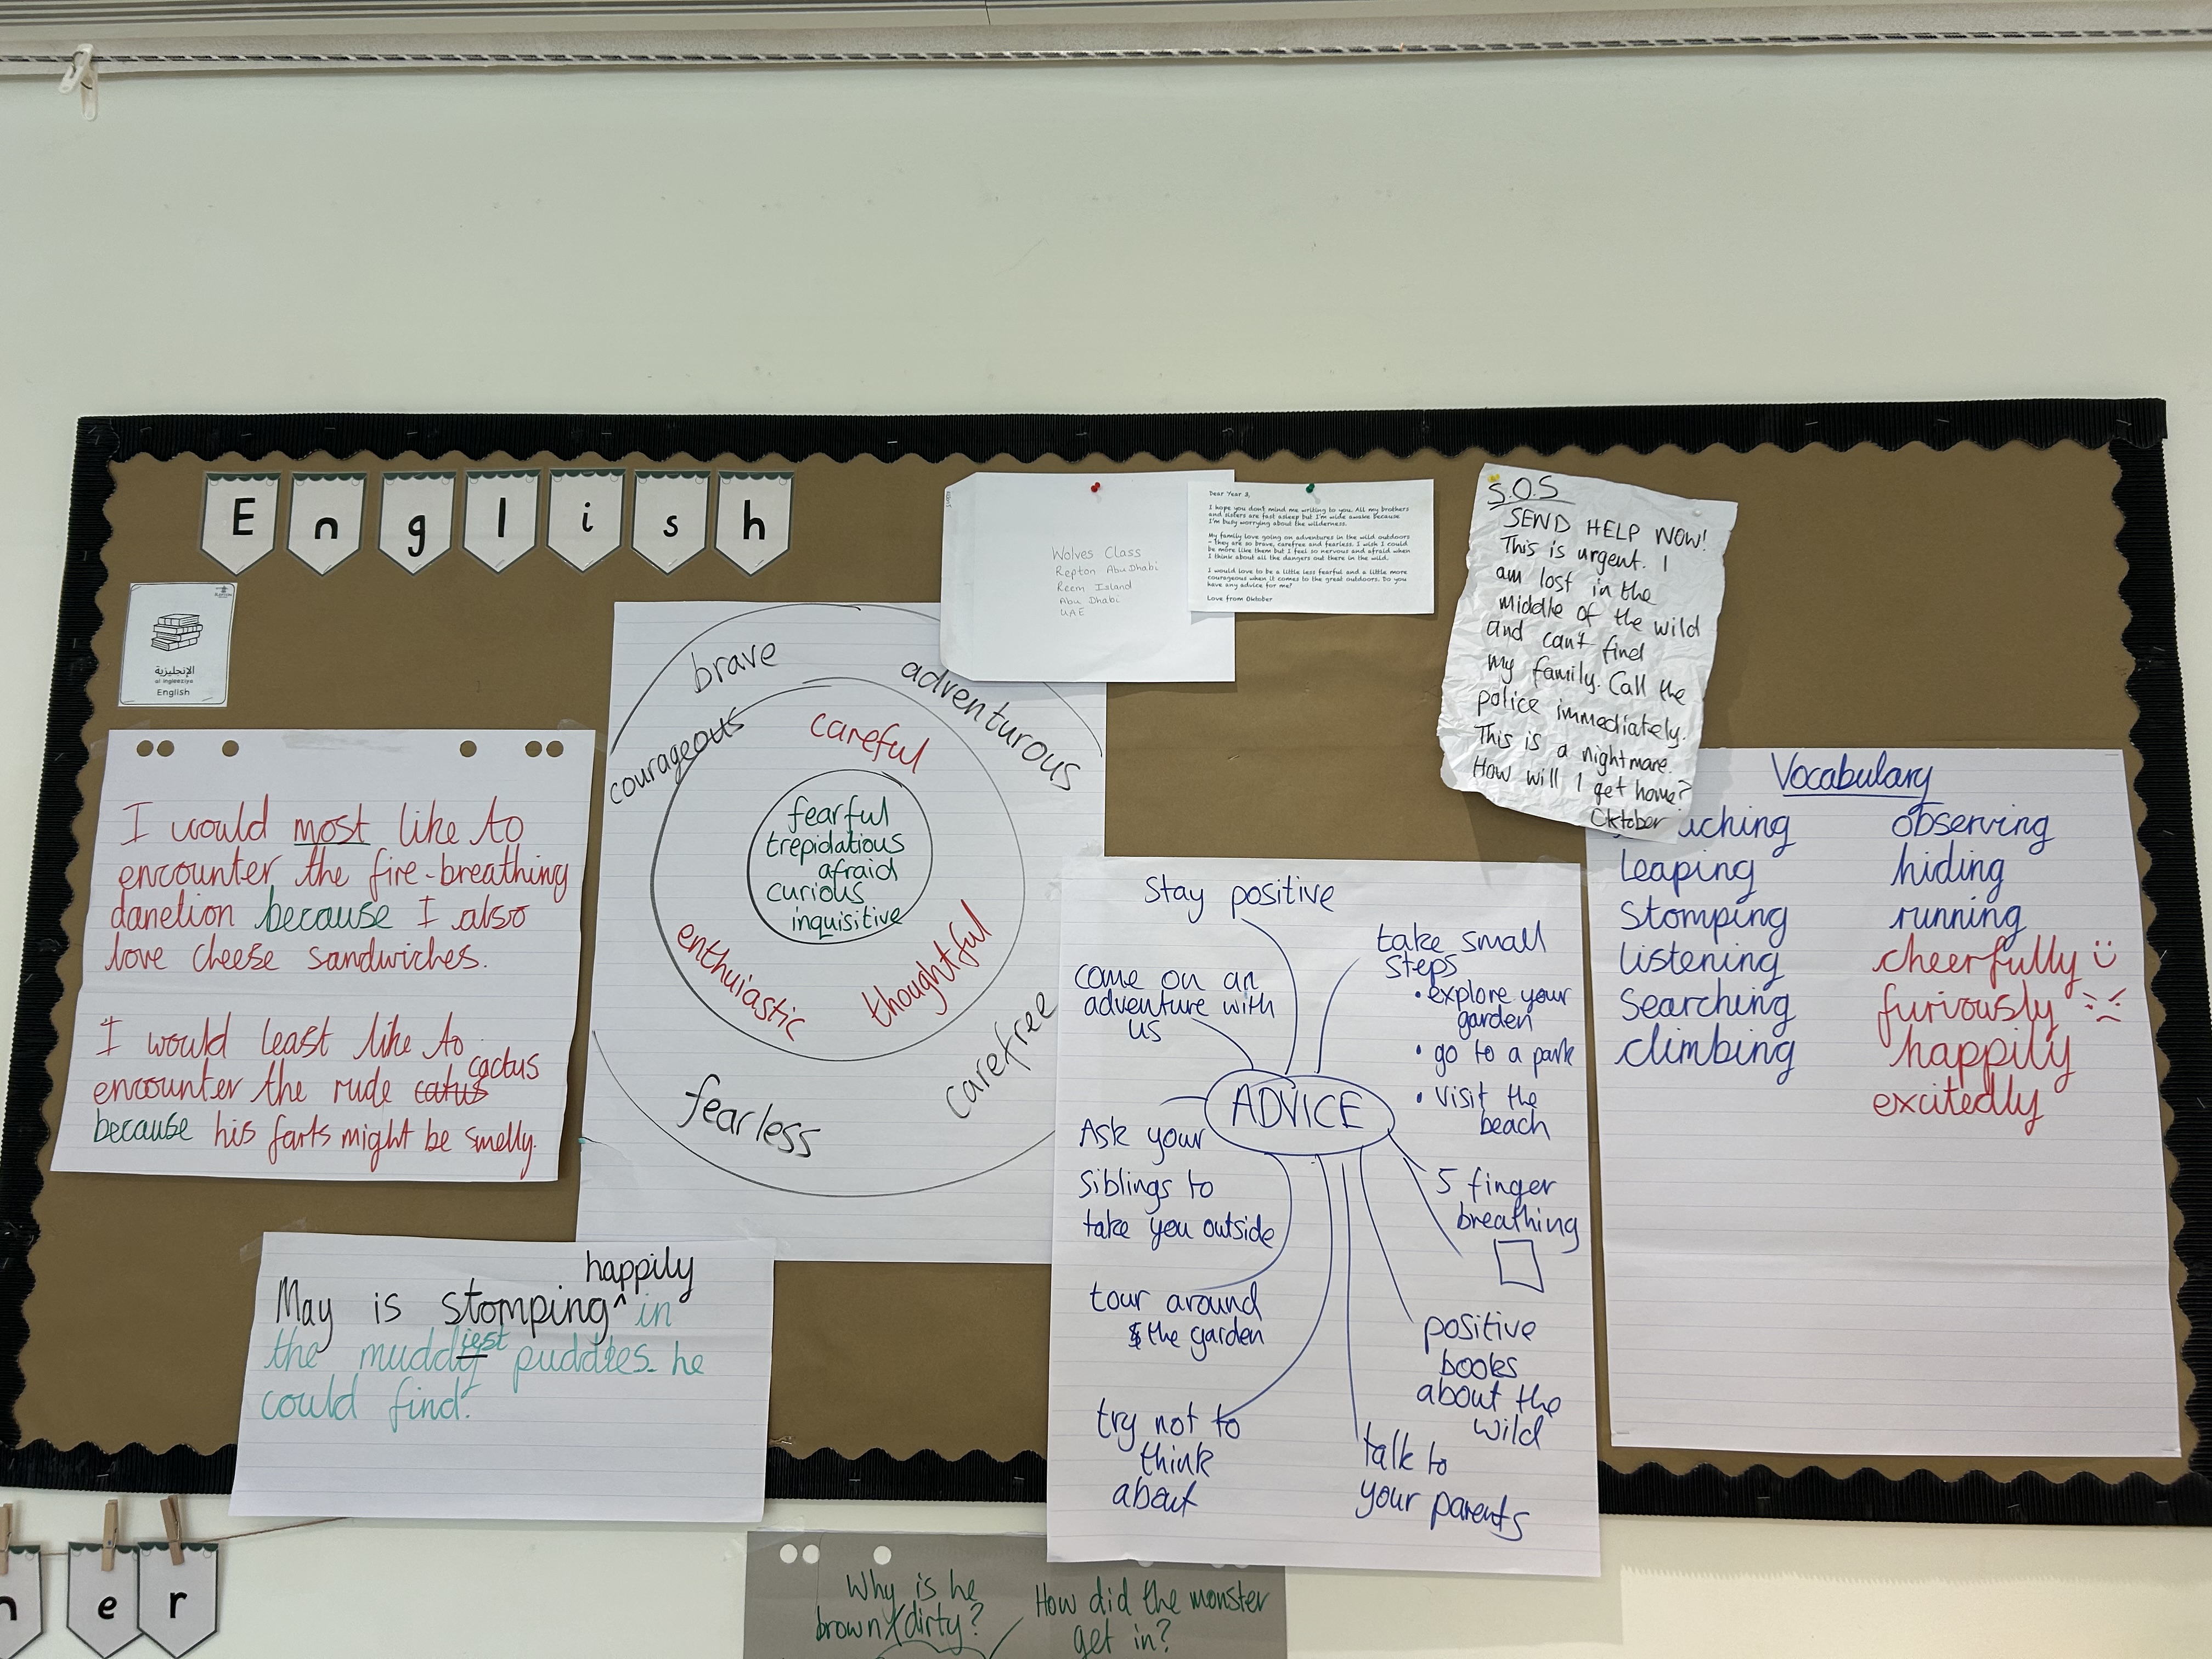 English
الإنجليزية
al ingleeziya
English
I would most like to
encounter the fire-breathing
danelion because I also
love cheese sandwiches.
I would least like to
cactus
encounter the rude catus
because his farts might be smelly.
happily
May is stomping ^ in
the muddy iest puddles he
could find.
brave
adventurous
courageous
careful
fearful
trepidatious
afraid
curious
inquisitive
enthuiastic
thoughtful
fearless
carefree
Wolves Class
Repton Abu Dhabi
Reem Island
Abu Dhabi
UAE
Dear Year 2,
I hope you don't mind me writing to you. All my brothers
and sisters are fast asleep but I'm wide awake because
I'm busy worrying about the wilderness.
My family love going on adventures in the wild outdoors
- they are so brave, carefree and fearless. I wish I could
be more like them but I feel so nervous and afraid when
I think about all the dangers out there in the wild.
I would love to be a little less fearful and a little more
courageous when it comes to the great outdoors. Do you
have any advice for me?
Love from Oktober
S.O.S
SEND HELP NOW!
This is urgent. I
am lost in the
middle of the wild
and can't find
my family. Call the
police immediately.
This is a nightmare.
How will I get home?
Oktober
Stay positive
come on an
adventure with
us
take small
steps
• explore your
garden
• go to a park
• visit the
beach
ADVICE
Ask your
siblings to
take you outside
5 finger
breathing
tour around
the garden
positive
books
about the
wild
try not to
think
about
talk to
your parents
Vocabulary
observing
leaping
hiding
stomping
running
listening
cheerfully
searching
furiously
climbing
happily
excitedly
n e r
Why is he
brown/dirty?
How did the monster
get in?